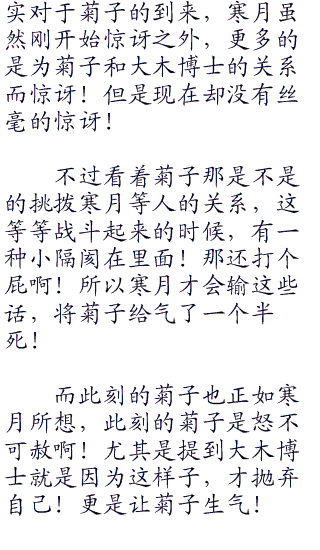 实对于菊子的到来，寒月虽
然刚开始惊讶之外，更多的
是为菊子和大木博士的关系
而惊讶！但是现在却没有丝
毫的惊讶！
不过看着菊子那是不是
的挑拨寒月等人的关系，这
等等战斗起来的时候，有一
种小隔阂在里面！那还打个
屁啊！所以寒月才会输这些
话，将菊子给气了一个半
死！
而此刻的菊子也正如寒
月所想，此刻的菊子是怒不
可赦啊！尤其是提到大木博
士就是因为这样子，才抛弃
自己！更是让菊子生气！